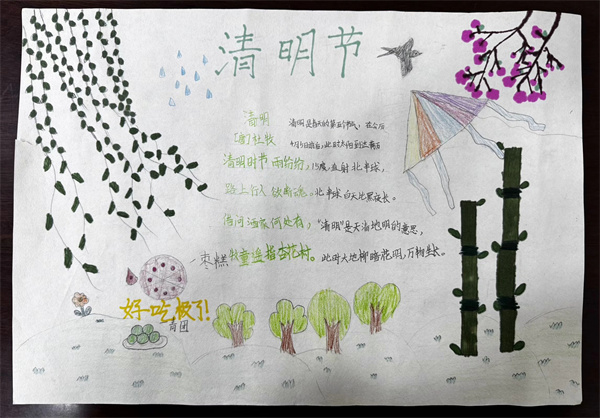 清明节
清明
[唐]杜牧
清明时节雨纷纷，
路上行人欲断魂。
借问酒家何处有，
牧童遥指杏花村。
清明是春天的第五个节气，在公历
4月5日前后，此时太阳到达黄经
15度，直射北半球，
北半球白天比黑夜长。
"清明"是天清地明的意思，
此时大地柳暗花明，万物生长。
枣糕
好吃极了!
青团